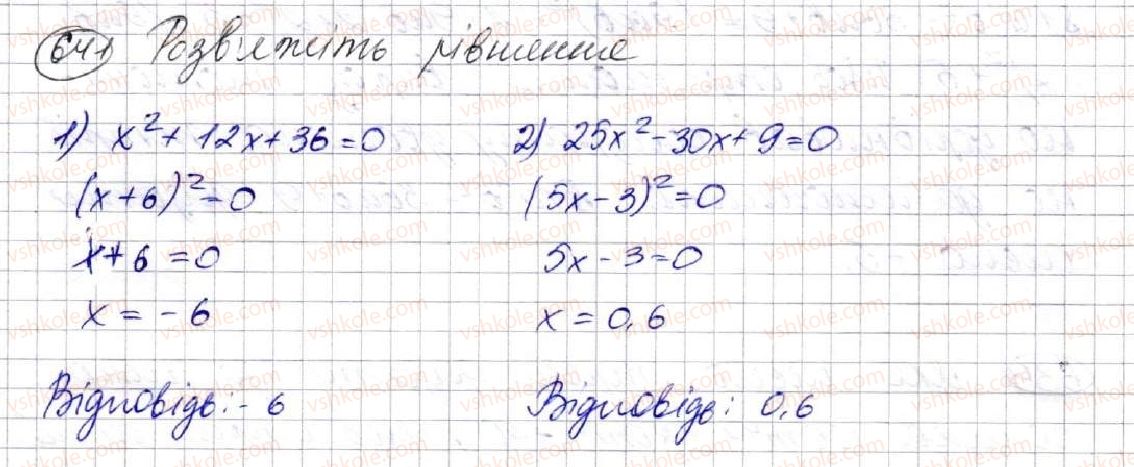 641 Розв'яжіть рівняння
1) x² + 12x + 36 = 0
(x + 6)² = 0
x + 6 = 0
x = - 6
Відповідь: - 6
2) 25x² - 30x + 9 = 0
(5x - 3)² = 0
5x - 3 = 0
x = 0,6
Відповідь: 0,6